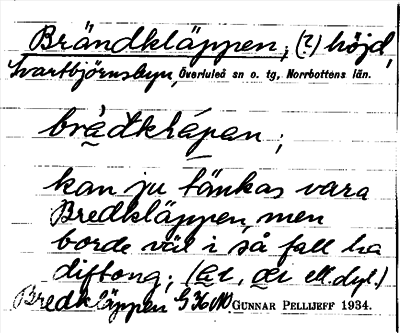 Brändkläppen; (?) höjd,
Svartbjörnsbyn, Överluleå sn o. tg, Norrbottens län.
kan ju tänkas vara
Bredkläppen, men
borde väl i så fall ha
diftong; (
Bredkläppen G H M. GUNNAR PELLIJEFF 1934.